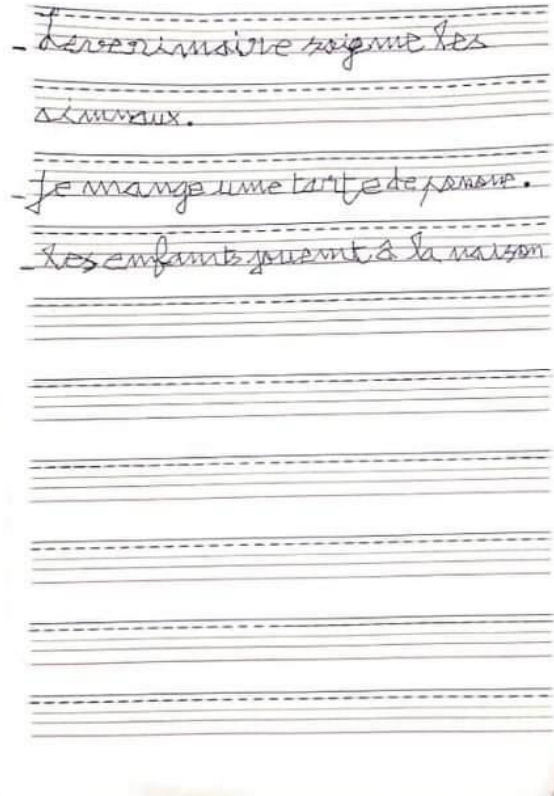 - Le verimaire soigne les
animaux.
- Je mange une tarte de pomme.
- Les enfants jouent à la maison